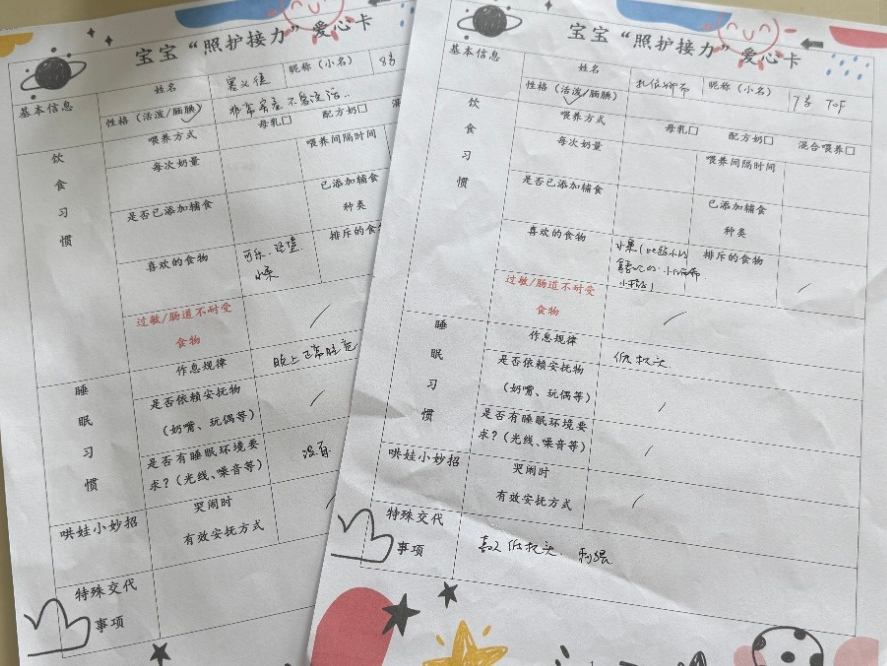 宝宝“照护接力”爱心卡
基本信息
姓名
昵称(小名)
8岁
性格(活泼/腼腆)
喂养方式
母乳□
配方奶□
饮食习惯
每次奶量
喂养间隔时间
是否已添加辅食
已添加辅食
种类
喜欢的食物
可乐、汉堡
水果
排斥的食
过敏/肠道不耐受
食物
睡眠习惯
作息规律
晚上正常睡觉
是否依赖安抚物
(奶嘴、玩偶等)
是否有睡眠环境要
求?(光线、噪音等)
没有
哄娃小妙招
哭闹时
有效安抚方式
特殊交代
事项
宝宝“照护接力”爱心卡
基本信息
姓名
昵称(小名)
7岁 TOF
性格(活泼/腼腆)
喂养方式
母乳□
配方奶□
混合喂养□
饮食习惯
每次奶量
喂养间隔时间
是否已添加辅食
已添加辅食
种类
喜欢的食物
水果
排斥的食物
过敏/肠道不耐受
食物
睡眠习惯
作息规律
是否依赖安抚物
(奶嘴、玩偶等)
是否有睡眠环境要
求?(光线、噪音等)
哄娃小妙招
哭闹时
有效安抚方式
特殊交代
事项